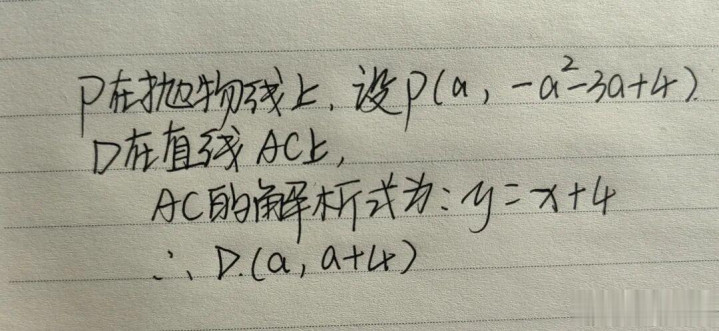 P在抛物线上，设P(a, -a²-3a+4).
D在直线AC上,
AC的解析式为: y=x+4
∴ D.(a, a+4)